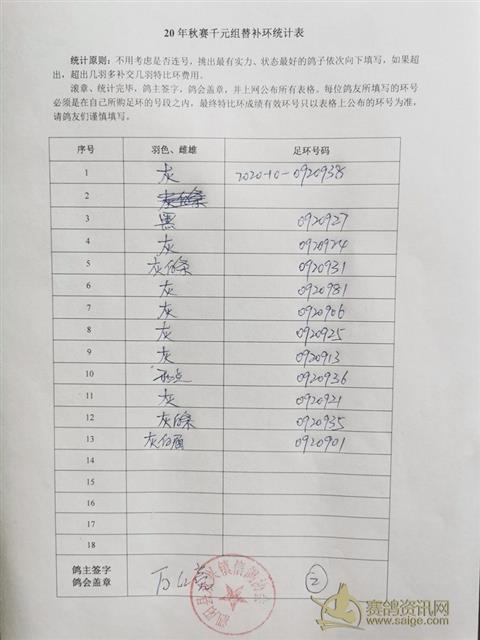 20年秋赛千元组替补环统计表
统计原则：不用考虑是否连号，挑出最有实力、状态最好的鸽子依次向下填写，如果超
出，超出几羽多补交几羽特比环费用。
滚章、统计完毕，鸽主签字，鸽会盖章，并上网公布所有表格。每位鸽友所填写的环号
必须是在自己所购足环的号段之内，最终特比环成绩有效环号只以表格上公布的环号为准，
请鸽友们谨慎填写。
序号 羽色、雌雄 足环号码
1 灰 2020-10-0920938
2
3 黑 0920927
4 灰 0920924
5 灰白条 0920931
6 灰 0920981
7 灰 0920906
8 灰 0920925
9 灰 0920913
10 0920936
11 灰 0920921
12 灰白条 0920935
13 灰白 0920901
14
15
16
17
18
鸽主签字
鸽会盖章
②
赛鸽资讯网
www.saige.com